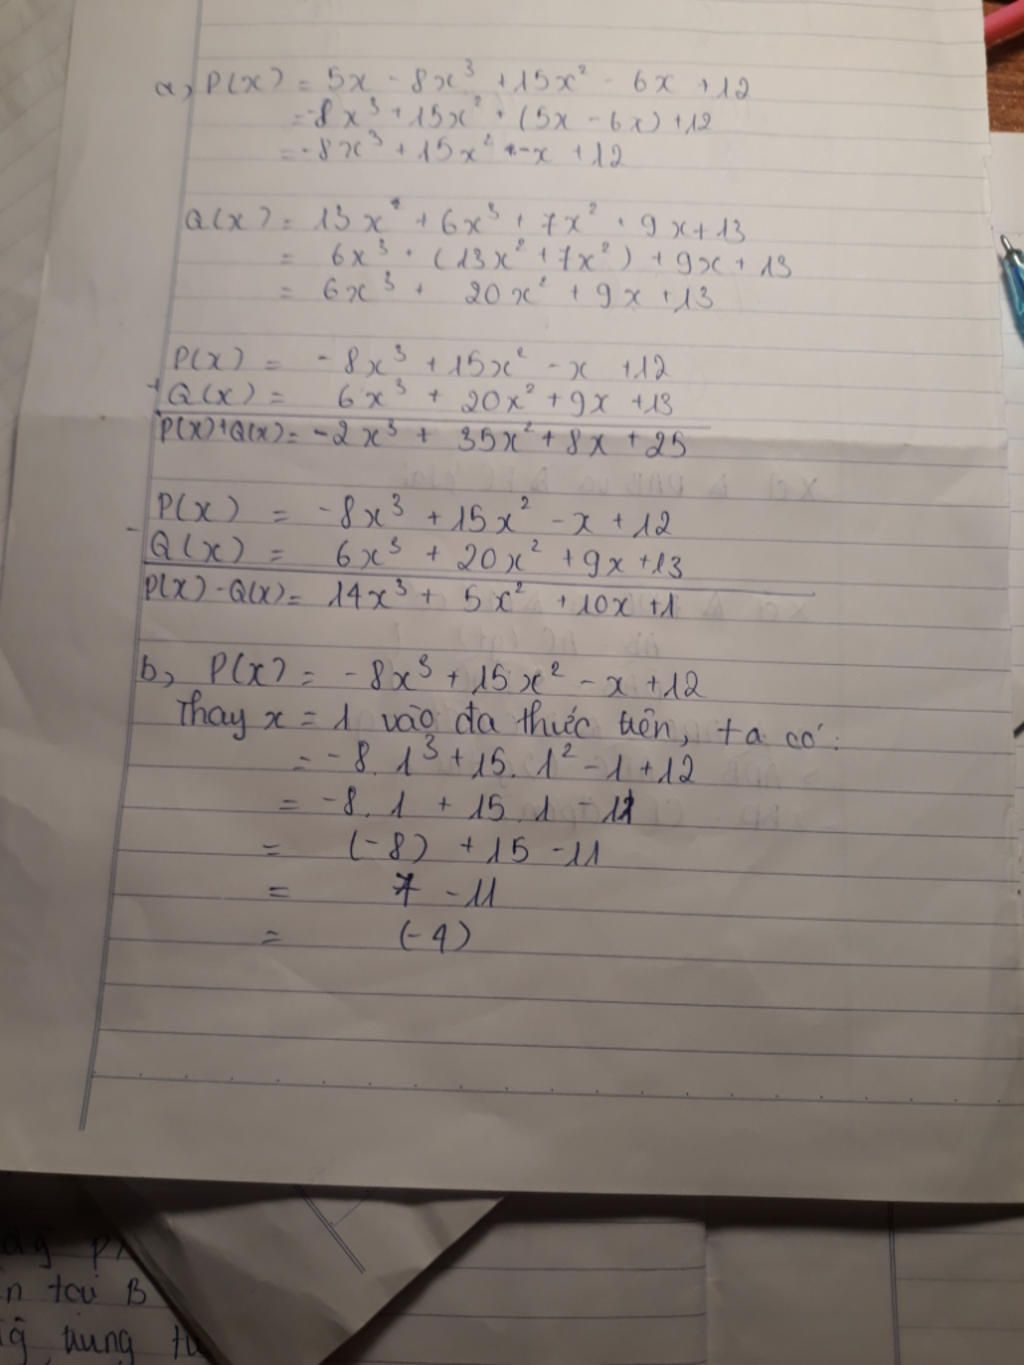 a, P(x) = 5x - 8x³ + 15x² - 6x + 12
= -8x³ + 15x² + (5x - 6x) + 12
= -8x³ + 15x² - x + 12
Q(x) = 13x² + 6x³ + 7x² + 9x + 13
= 6x³ + (13x² + 7x²) + 9x + 13
= 6x³ + 20x² + 9x + 13
P(x) = -8x³ + 15x² - x + 12
+ Q(x) = 6x³ + 20x² + 9x + 13
P(x)+Q(x) = -2x³ + 35x² + 8x + 25
P(x) = -8x³ + 15x² - x + 12
- Q(x) = 6x³ + 20x² + 9x + 13
P(x) - Q(x) = 14x³ + 5x² + 10x + 1
b, P(x) = -8x³ + 15x² - x + 12
Thay x = 1 vào đa thức trên, ta có:
= -8. 1³ + 15. 1² - 1 + 12
= -8. 1 + 15. 1 - 11
= (-8) + 15 - 11
= 7 - 11
= (-4)
tại B